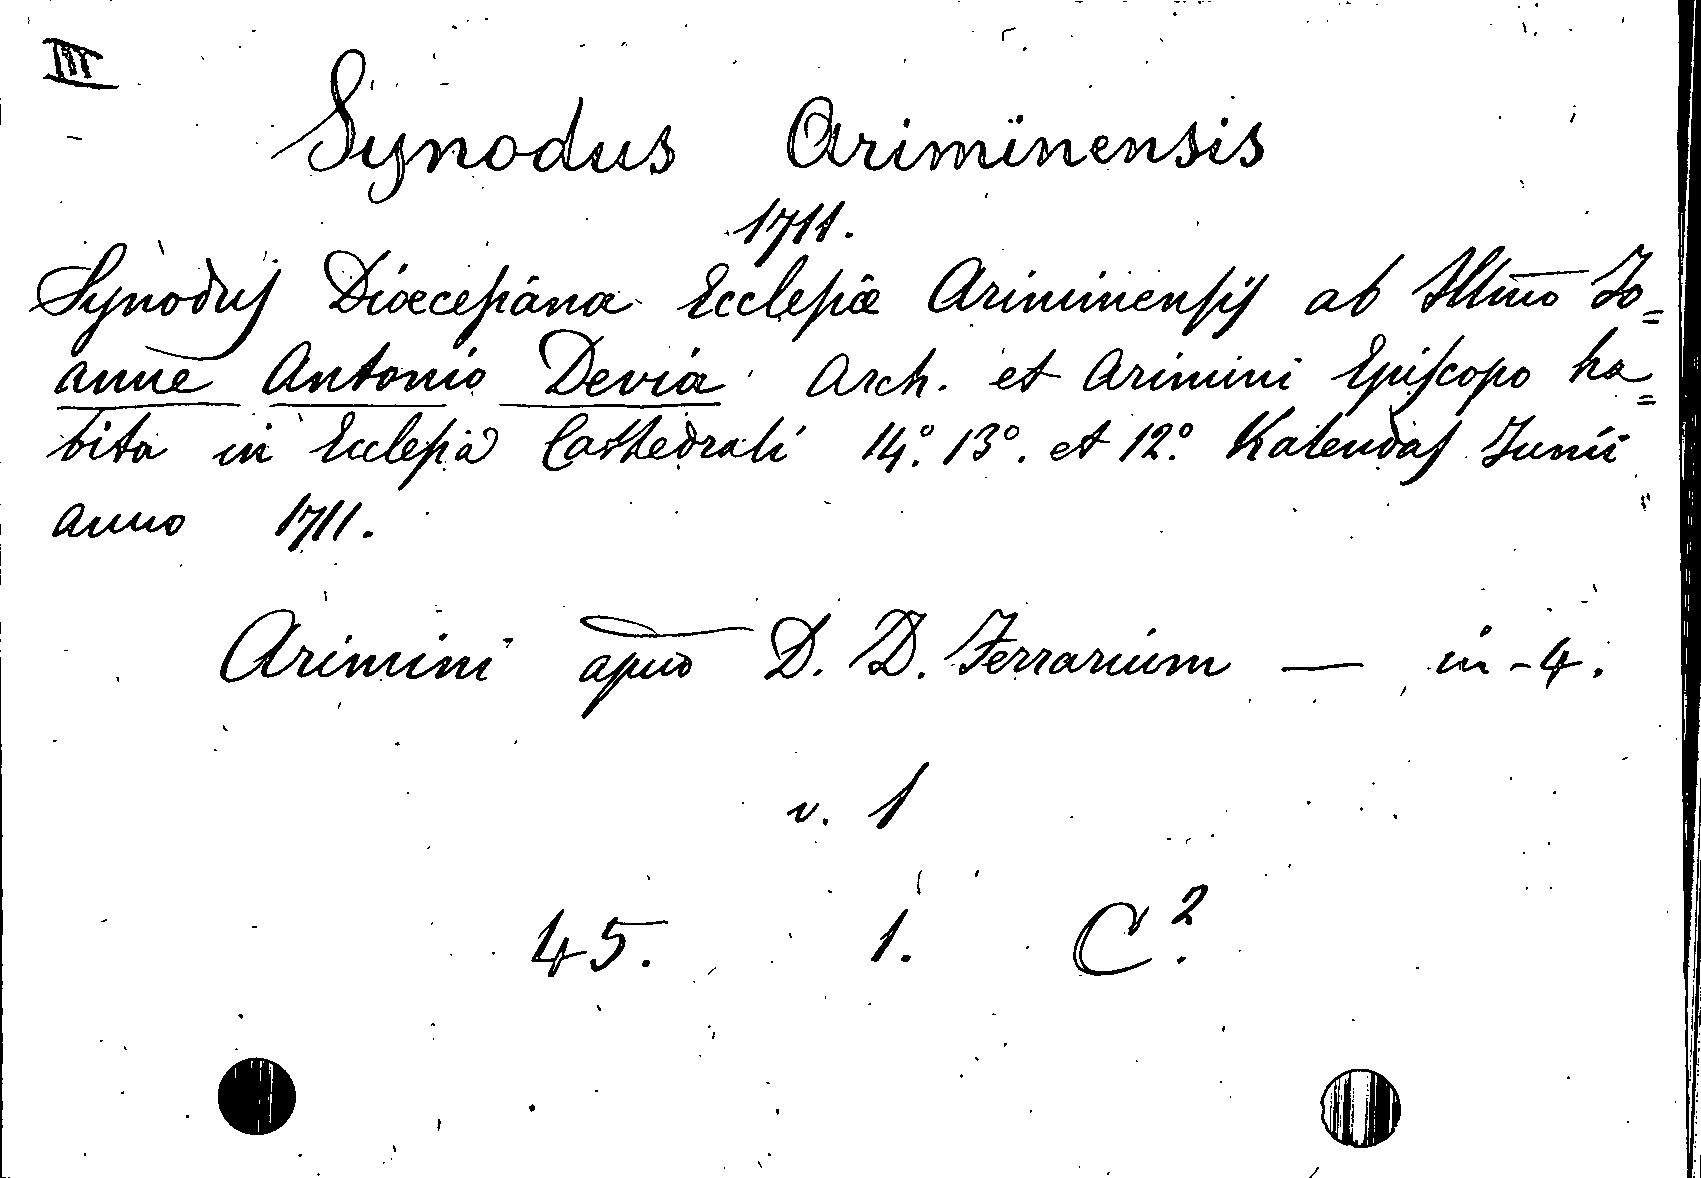 III
Synodus Ariminensis
1711.
Synodus Diœcesana Ecclesiæ Ariminensis ab Illmo Jo=
anne Antonio Devia Arch. et Arimini Episcopo ha=
bita in Ecclesia Cathedrali 14.° 13°. et 12.° Kalendas Junii
anno 1711.
Arimini apud D. D. Ferrarium — in-4.
v. 1
45. 1. C².